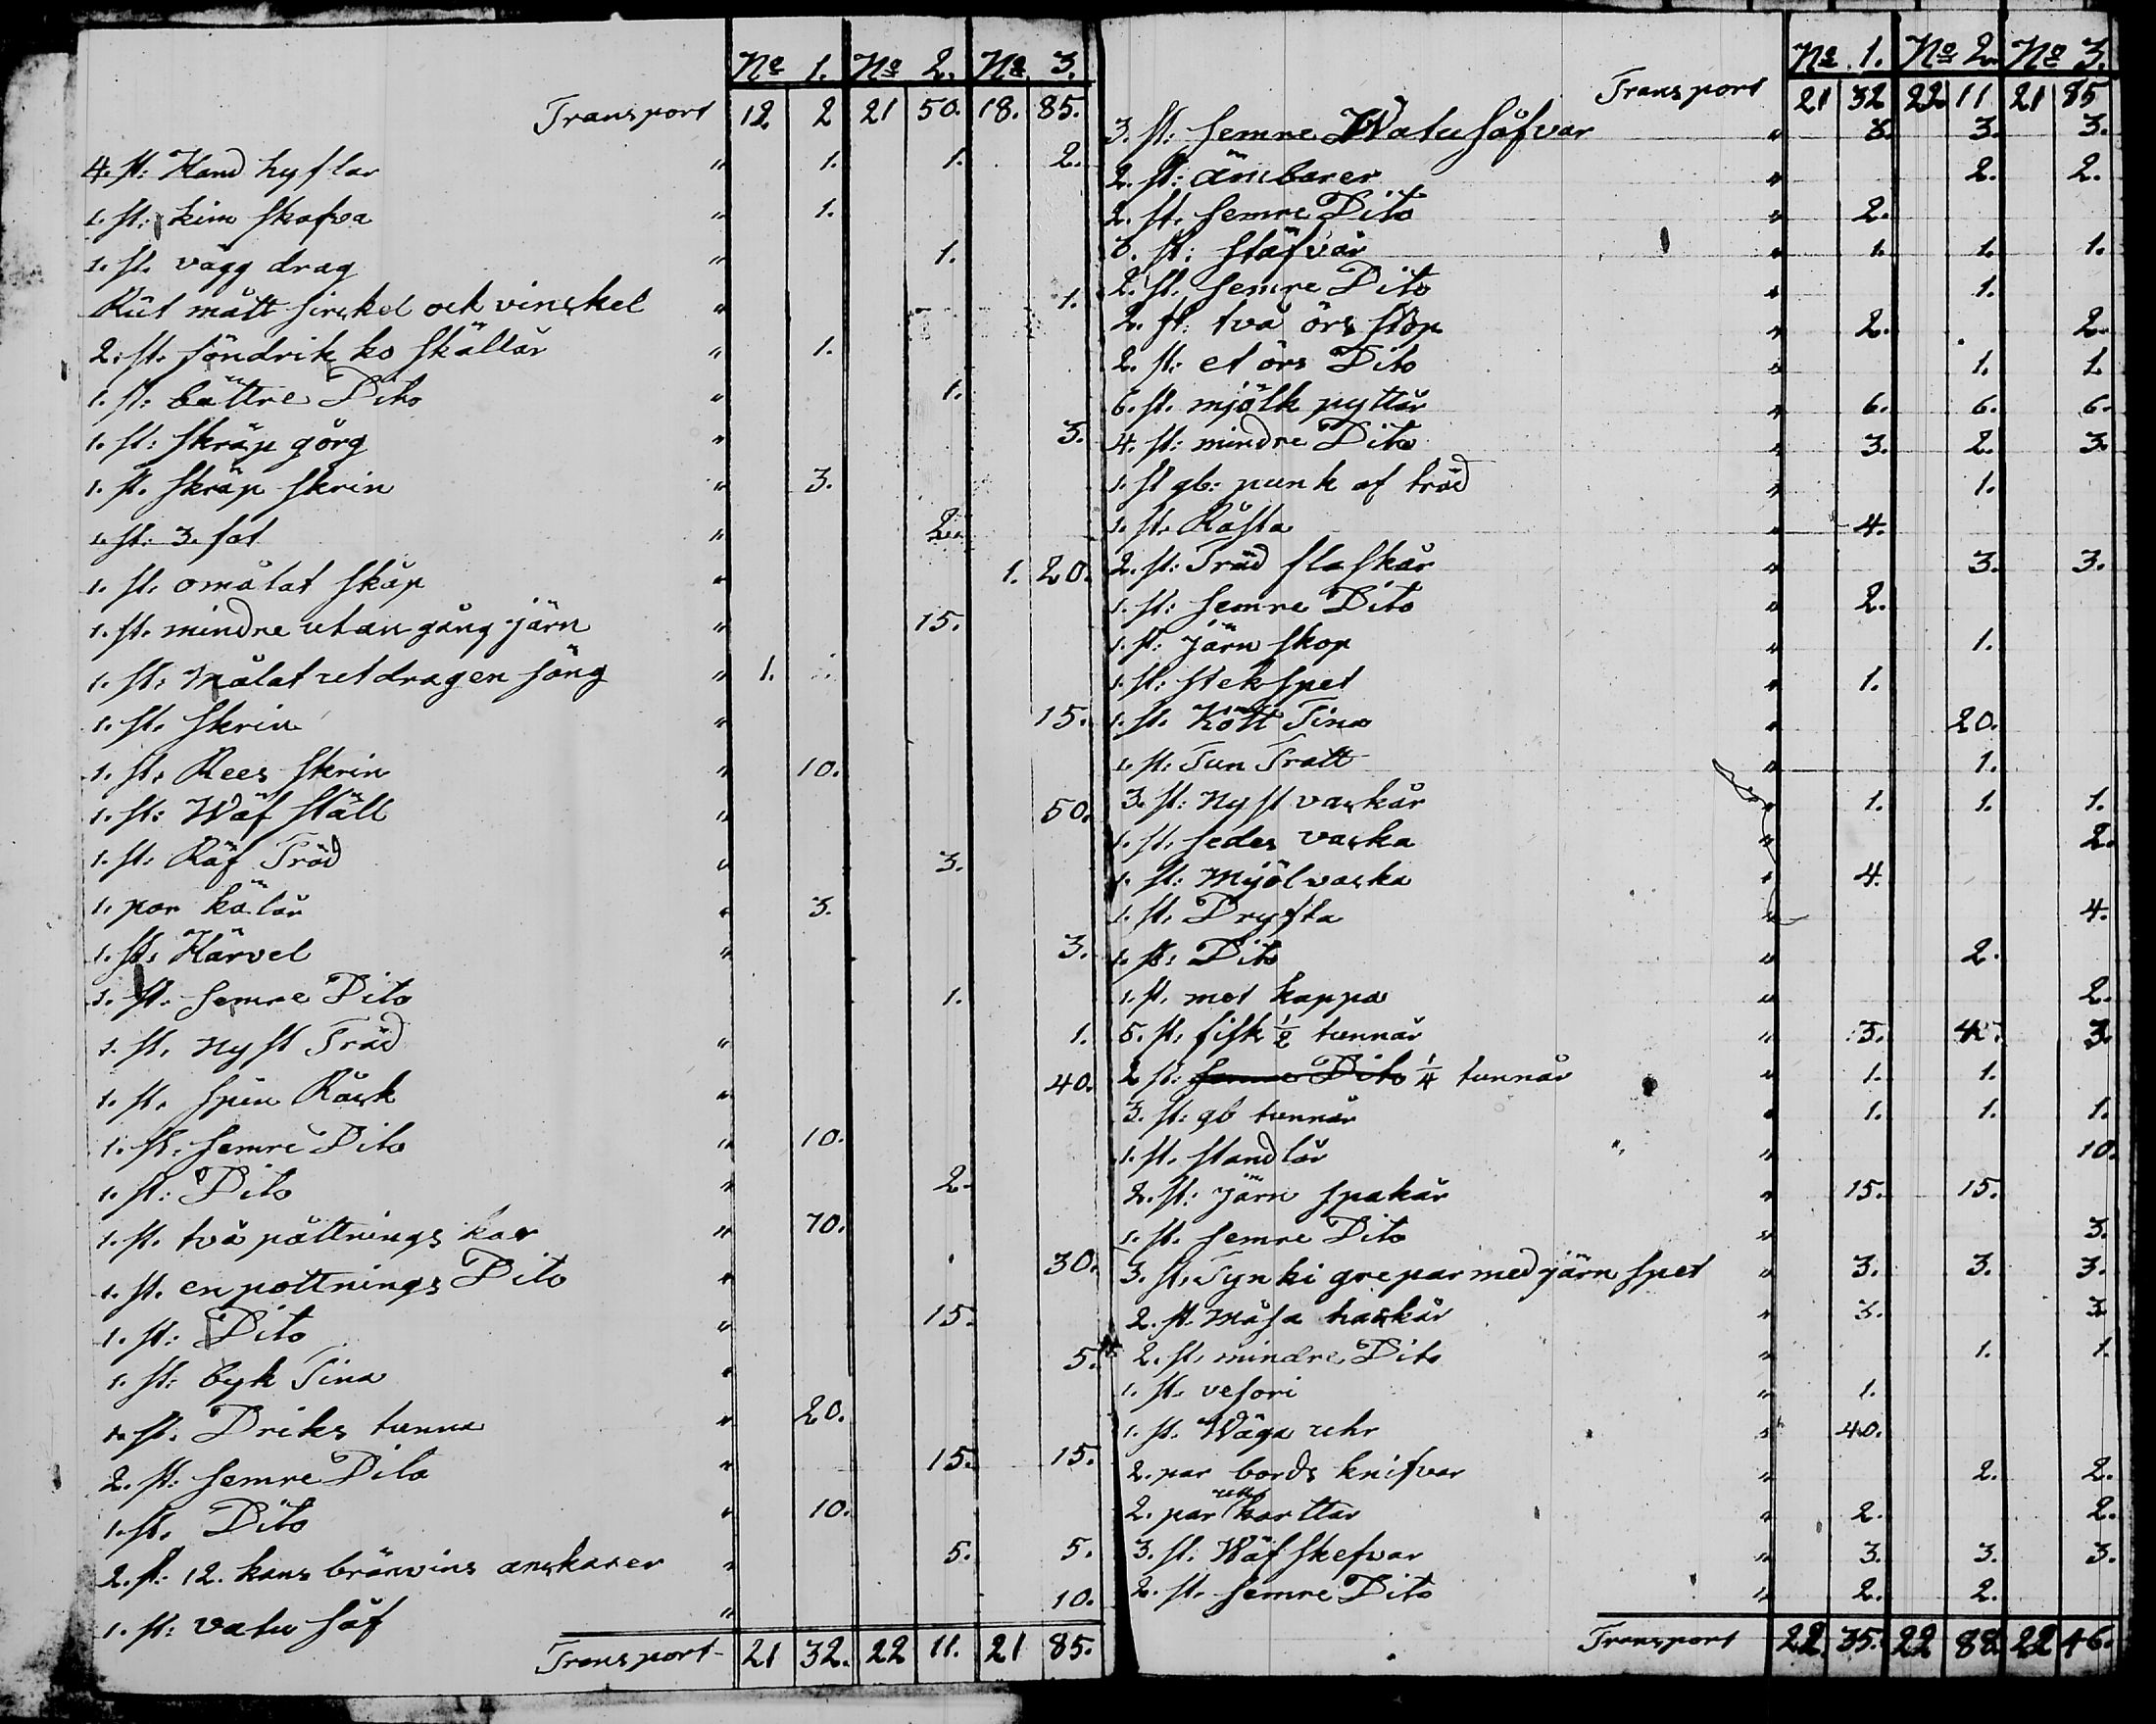 No 1. No 2. No 3.
Transport 12 2 21 50. 18. 85.
4. st: Hand hyflar " 1. 1. 2.
1. st: kim skafva " 1.
1. st. vägg drag " 1.
Rüt mått sirskel och vinskel " 1.
2. st. söndrik ko skällår " 1.
1. st: bättre Dito " 1.
1. st: skräp görg " 3.
1. st. skräp skrin " 3.
1. st: 3. fot " 2.
1. st. omålat skåp " 1. 20.
1. st. mindre utan gång järn " 15.
1. st: målat utdragen säng " 1.
1. st. skrin " 15.
1. st. Rees skrin " 10.
1. st: Wäf ställ " 50.
1. st. Räf Träd " 3.
1. par kälar " 3.
1. st. Härvel " 3.
1. st. semre Dito 1.
1. st. nyst Träd " 1.
1. st. spin Råck " 40.
1. st. semre Dito " 10.
1. st: Dito " 2.
1. st. två påttnings kar " 70.
1. st. en pottnings Dito " 30.
1. st: Dito " 15.
1. st: byk Tina " 5.
1. st. Driks tunna " 20.
2. st: semre Dito " 15. 15.
1. st. Dito " 10.
2. st: 12. kans bränvins anskarer " 5. 5.
1. st: vatu såf " 10.
Transport 21 32. 22 11. 21 85.
No 1. No 2. No 3.
Transport 21 32 22 11 21 85
3. st: semre Watu såfvar " 3. 3. 3.
2. st: ämbarer " 2. 2.
2. st. semre Dito " 2.
st: stäfvår " 1. 1. 1.
2. st. semre Dito " 1.
2. st: två örs stöp " 2. 2.
2. st: et örs Dito " 1. 1.
6. st. mjölk pyttår " 6. 6. 6.
4. st: mindre Dito " 3. 2. 3.
1. st gb: punk af träd " 1.
1. st. Råsta " 4.
2. st: Träd flaskår " 3. 3.
1. st: semre Dito " 2.
1. st: järn skop " 1.
1. st: stekspet " 1.
1. st. Kött Tina " 20.
1. st: Tun Tratt " 1.
3. st: nyst vaskår " 1. 1. 1.
1. st. sedes vaska " 2.
1. st: Mjöl vaska " 4.
1. st. Dryfta " 4.
1. st: Dito " 2.
1. st. mot kappa " 2.
5. st. fisk ½ tunnår " 3. 4. 3.
2 st: semre Dito ¼ tunnår " 1. 1.
3. st: gb tunnår " 1. 1. 1.
1. st. standlår " 10.
2. st: järn spakår " 15. 15.
1. st. semre Dito " 3.
3. st. Tynki grepar med järn spet " 3. 3. 3.
2. st. Måsa haskår " 3. 3.
2. st. mindre Dito " 1. 1.
1. st. vesori " 1.
1. st. Wäga uhr " 40.
2. par bords knifvar " 2. 2.
2. par ull karttar " 2. 2.
3. st. Wäf skefvar " 3. 3. 3.
2. st. semre Dito " 2. 2.
Transport 22. 35. 22 88 22 46.